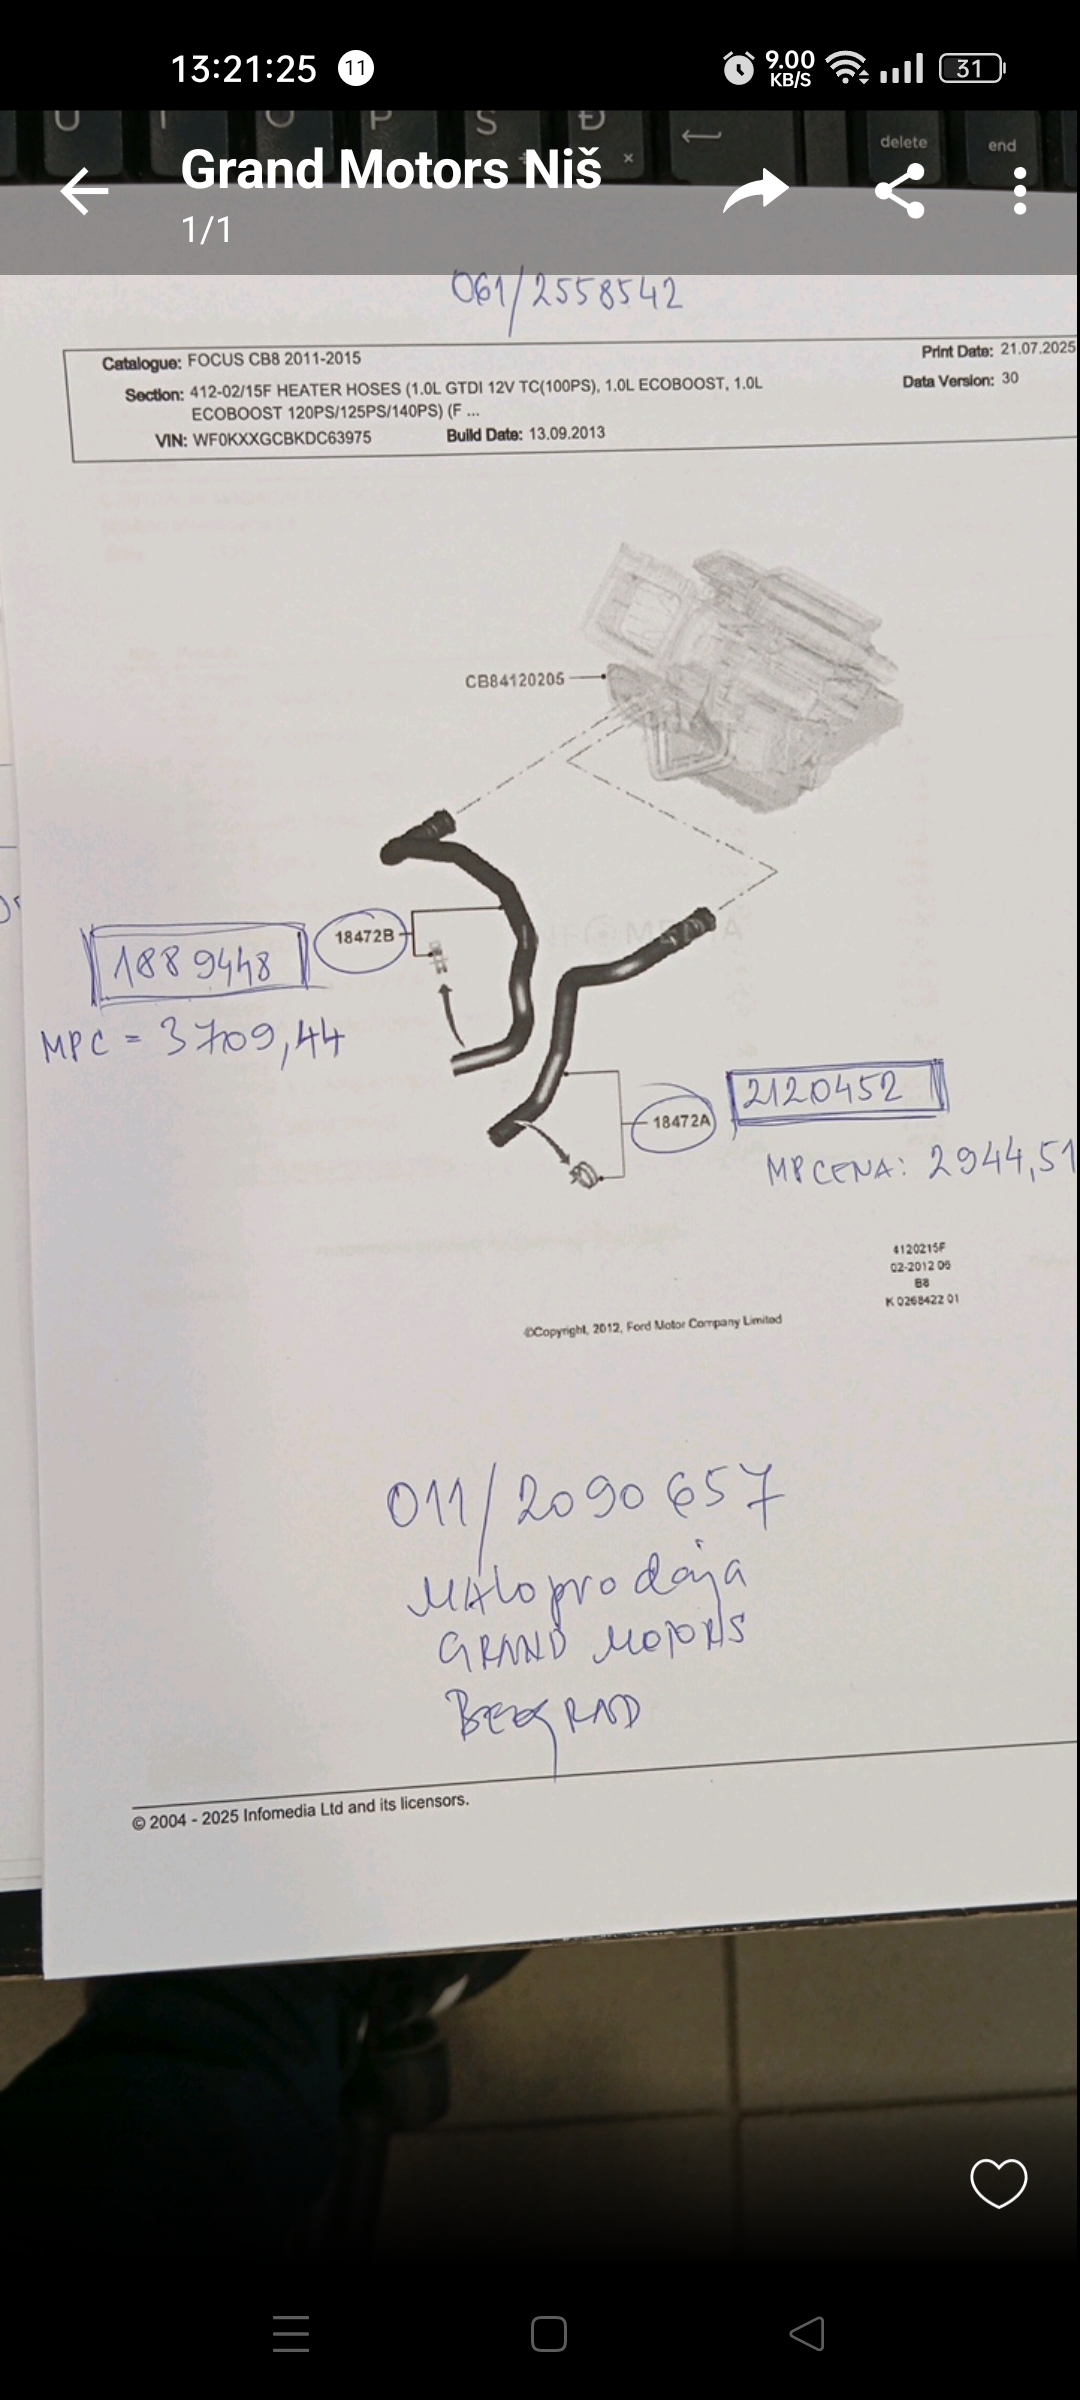 13:21:25 11 9.00 KB/S 31
U I O P Š Đ delete end
Grand Motors Niš
1/1
061/2558542
Catalogue: FOCUS CB8 2011-2015
Print Date: 21.07.2025
Section: 412-02/15F HEATER HOSES (1.0L GTDI 12V TC(100PS), 1.0L ECOBOOST, 1.0L
Data Version: 30
ECOBOOST 120PS/125PS/140PS) (F ...
VIN: WF0KXXGCBKDC63975 Build Date: 13.09.2013
CB84120205
1889448 18472B
MPC = 3709,44
2120452
18472A
MPCENA: 2944,51
4120215F
02-2012 06
B8
K 0268422 01
©Copyright, 2012, Ford Motor Company Limited
011/2090657
MAloprodaja
GRAND MOTORS
BEOGRAD
© 2004 - 2025 Infomedia Ltd and its licensors.